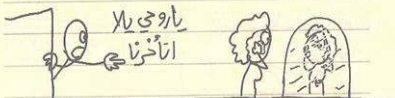 ياروحي يلا
اتأخرنا